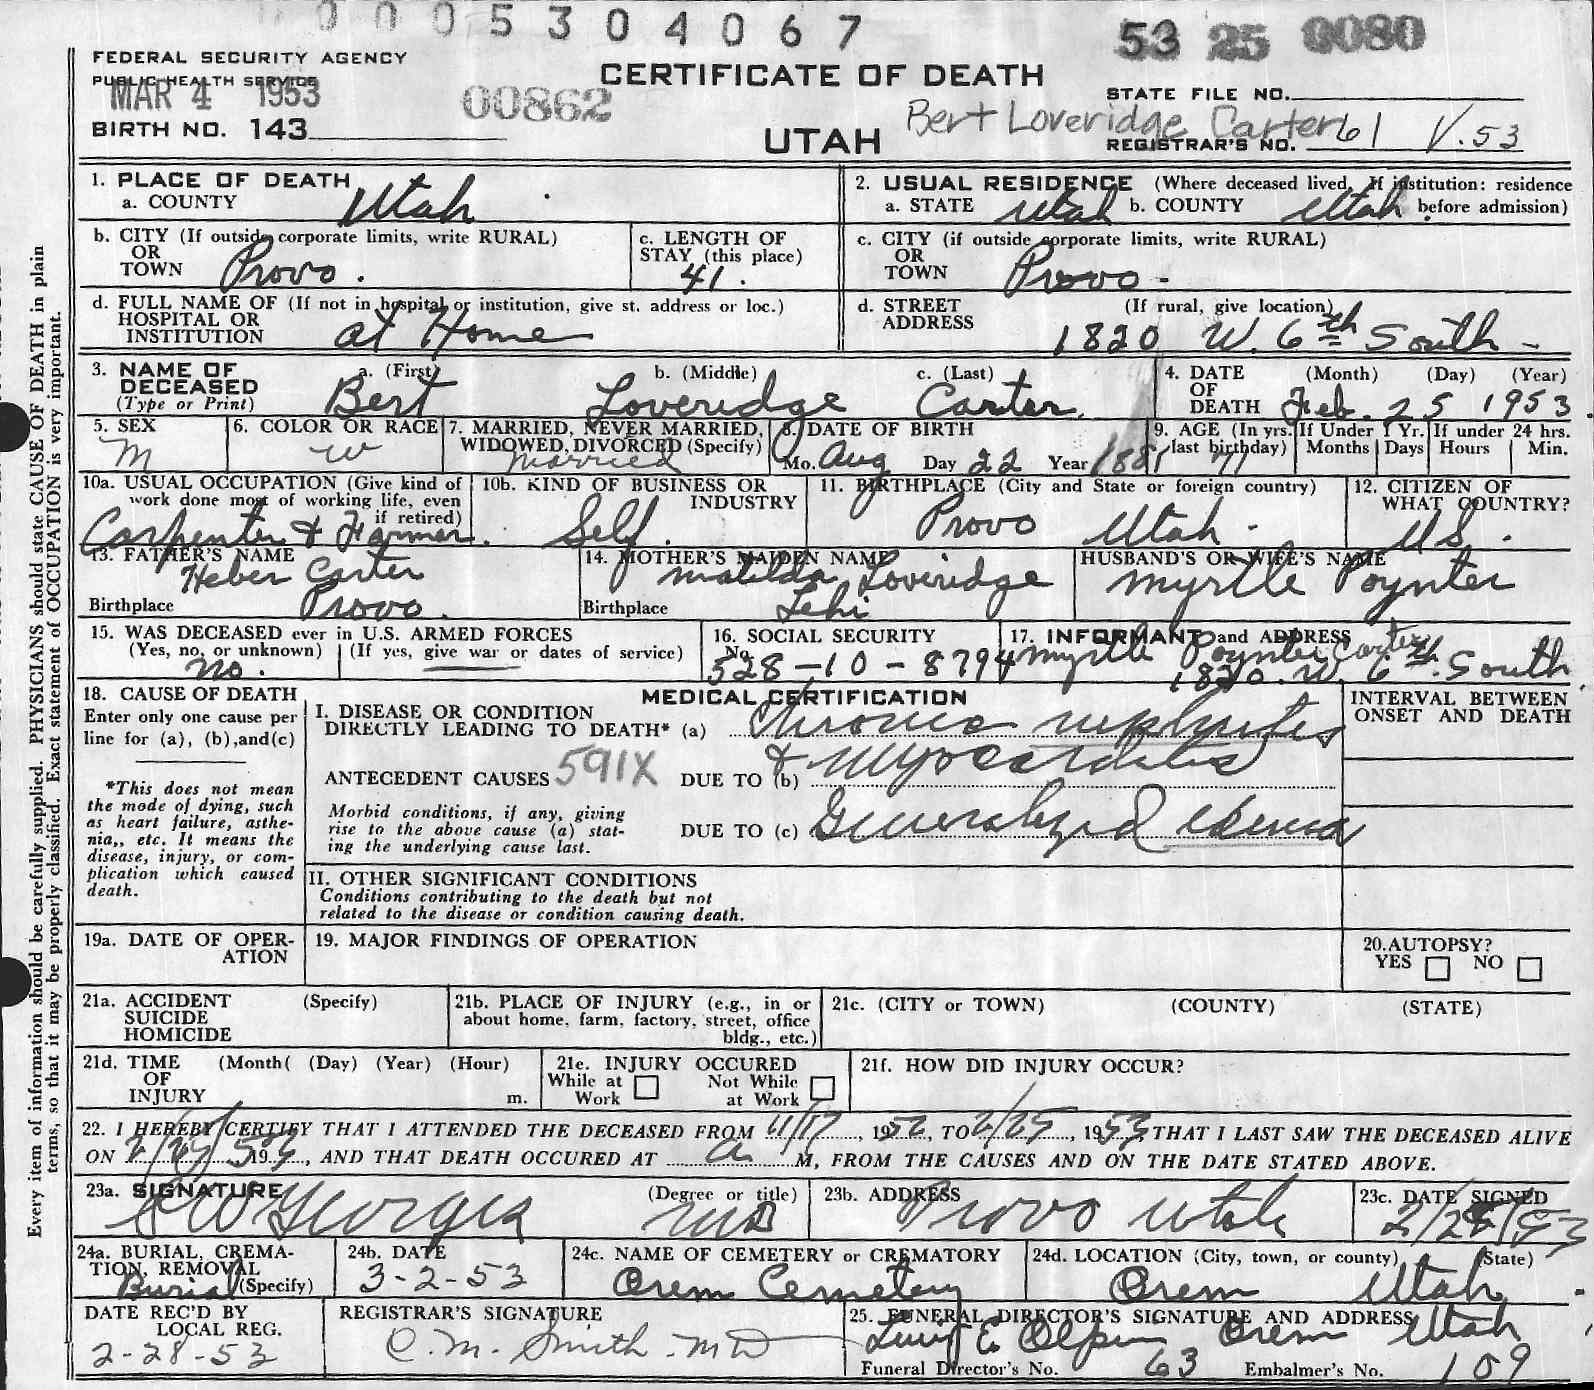 0005304067
53 25 0080
FEDERAL SECURITY AGENCY
PUBLIC HEALTH SERVICE
MAR 4 1953
00862
CERTIFICATE OF DEATH
STATE FILE NO.
Bert Loveridge Carter
BIRTH NO. 143
UTAH
REGISTRAR'S NO. 61 V.53
1. PLACE OF DEATH
a. COUNTY Utah
2. USUAL RESIDENCE (Where deceased lived. If institution: residence before admission)
a. STATE Utah b. COUNTY Utah
b. CITY (If outside corporate limits, write RURAL)
OR
TOWN Provo.
c. LENGTH OF
STAY (this place)
41.
c. CITY (if outside corporate limits, write RURAL)
OR
TOWN Provo -
d. FULL NAME OF (If not in hospital or institution, give st. address or loc.)
HOSPITAL OR
INSTITUTION at Home
d. STREET (If rural, give location)
ADDRESS 1820 W. 6th South -
3. NAME OF
DECEASED
(Type or Print)
a. (First) b. (Middle) c. (Last)
Bert Loveridge Carter
4. DATE (Month) (Day) (Year)
OF
DEATH Feb. 25 1953.
5. SEX
M
6. COLOR OR RACE
W
7. MARRIED, NEVER MARRIED,
WIDOWED, DIVORCED (Specify)
married
8. DATE OF BIRTH
Mo. Aug Day 22 Year 1881
9. AGE (In yrs. last birthday) 71
If Under 1 Yr. Months Days
If under 24 hrs. Hours Min.
10a. USUAL OCCUPATION (Give kind of
work done most of working life, even
if retired)
Carpenter & Farmer.
10b. KIND OF BUSINESS OR
INDUSTRY
Self.
11. BIRTHPLACE (City and State or foreign country)
Provo Utah.
12. CITIZEN OF
WHAT COUNTRY?
U.S.
13. FATHER'S NAME
Heber Carter
Birthplace Provo.
14. MOTHER'S MAIDEN NAME
Matilda Loveridge
Birthplace Lehi
HUSBAND'S OR WIFE'S NAME
Myrtle Poynter
15. WAS DECEASED ever in U.S. ARMED FORCES
(Yes, no, or unknown) (If yes, give war or dates of service)
no.
16. SOCIAL SECURITY
No.
528-10-8794
17. INFORMANT and ADDRESS
Myrtle Poynter Carter
1820. W. 6th. South.
18. CAUSE OF DEATH
Enter only one cause per
line for (a), (b),and(c)
*This does not mean
the mode of dying, such
as heart failure, asthe-
nia,, etc. It means the
disease, injury, or com-
plication which caused
death.
MEDICAL CERTIFICATION
INTERVAL BETWEEN
ONSET AND DEATH
I. DISEASE OR CONDITION
DIRECTLY LEADING TO DEATH* (a) Chronic nephritis
ANTECEDENT CAUSES 591X DUE TO (b) & Myocarditis
Morbid conditions, if any, giving
rise to the above cause (a) stat-
ing the underlying cause last.
DUE TO (c) Generalyzed edema
II. OTHER SIGNIFICANT CONDITIONS
Conditions contributing to the death but not
related to the disease or condition causing death.
19a. DATE OF OPER-
ATION
19. MAJOR FINDINGS OF OPERATION
20. AUTOPSY?
YES NO
21a. ACCIDENT (Specify)
SUICIDE
HOMICIDE
21b. PLACE OF INJURY (e.g., in or
about home, farm, factory, street, office
bldg., etc.)
21c. (CITY or TOWN) (COUNTY) (STATE)
21d. TIME (Month( (Day) (Year) (Hour)
OF
INJURY m.
21e. INJURY OCCURED
While at Work Not While at Work
21f. HOW DID INJURY OCCUR?
22. I HEREBY CERTIFY THAT I ATTENDED THE DECEASED FROM 11/17, 1952, TO 2/25, 1953, THAT I LAST SAW THE DECEASED ALIVE
ON 2/25/53 19 , AND THAT DEATH OCCURED AT a M, FROM THE CAUSES AND ON THE DATE STATED ABOVE.
23a. SIGNATURE (Degree or title)
Georges MD
23b. ADDRESS
Provo Utah
23c. DATE SIGNED
24a. BURIAL, CREMA-
TION, REMOVAL
(Specify)
Burial
24b. DATE
3-2-53
24c. NAME OF CEMETERY or CREMATORY
Orem Cemetery
24d. LOCATION (City, town, or county) (State)
Orem Utah.
DATE REC'D BY
LOCAL REG.
2-28-53
REGISTRAR'S SIGNATURE
C. M. Smith. MD
25. FUNERAL DIRECTOR'S SIGNATURE AND ADDRESS
E. Olpin Orem Utah
Funeral Director's No. 63 Embalmer's No. 109
Every item of information should be carefully supplied. PHYSICIANS should state CAUSE OF DEATH in plain
terms, so that it may be properly classified. Exact statement of OCCUPATION is very important.